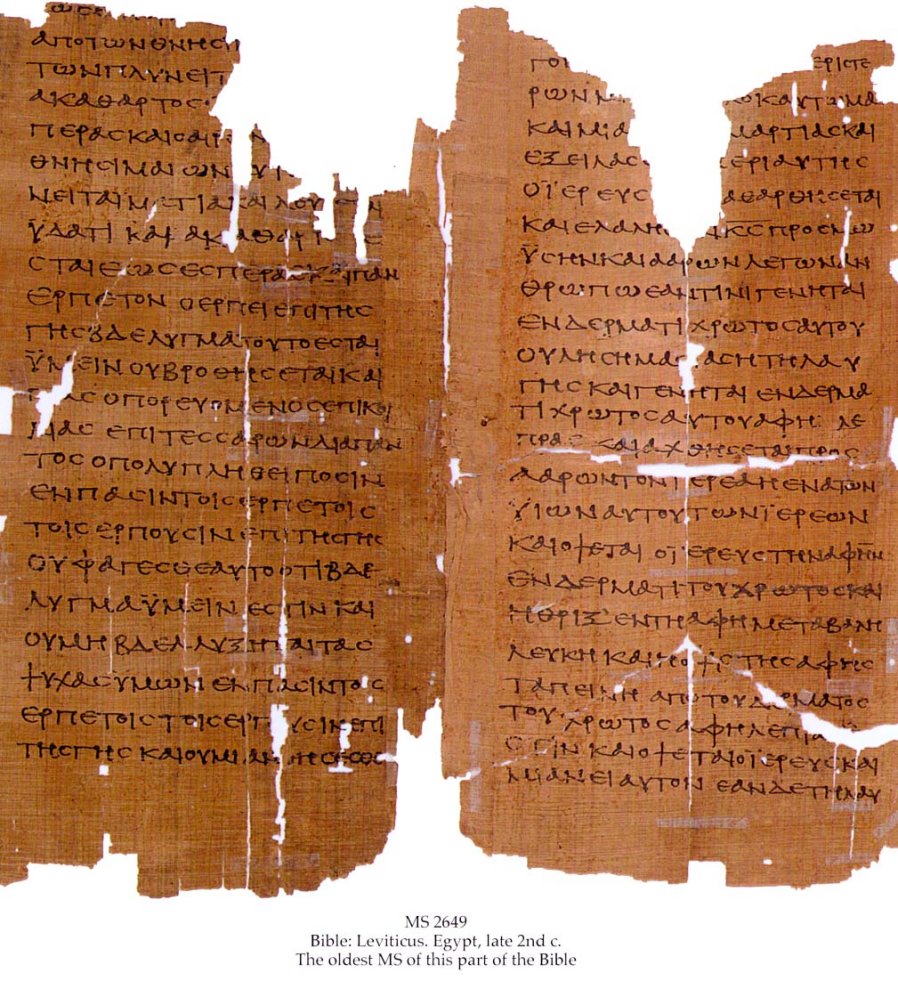 ΑΠΟΤΩΝΘΝΗCΙ
ΤΩΝΠΛΥΝΕΙΤ
ΑΚΑΘΑΡΤΟC
ΠΕΡΑCΚΑΙΟΑΙΡ
ΘΝΗCΙΜΑΙΩΝ
ΝΕΙΤΑΙΜΑΤΙΑΚΑΙΛΟΥ
ΫΔΑΤΙ ΚΑΙ ΑΚΑΘΑΡΤ
CΤΑΙΕΩCΕCΠΕΡΑCΚΑΙΠΑΝ
ΕΡΠΕΤΟΝ ΟΕΡΠΕΙΕΠΙΤΗC
ΓΗCΒΔΕΛΥΓΜΑΤΟΥΤΟΕCΤΑΙ
ΫΜΕΙΝΟΥΒΡΟΘΗCΕΤΑΙΚΑΙ
ΑC ΟΠΟΡΕΥΟΜΕΝΟCΕΠΙΚΟΙ
ΛΙΑC ΕΠΙΤΕCCΑΡΩΝΔΙΑΠΑΝ
ΤΟCΟΠΟΛΥΠΛΗΘΕΙΠΟCΙΝ
ΕΝΠΑCΙΝΤΟΙCΕΡΠΕΤΟΙC
ΤΟΙCΕΡΠΟΥCΙΝΕΠΙΤΗCΓΗC
ΟΥΦΑΓΕCΘΕΑΥΤΟΟΤΙΒΔΕ
ΛΥΓΜΑΫΜΕΙΝΕCΤΙΝΚΑΙ
ΟΥΜΗΒΔΕΛΛΥΞΗΤΑΙΤΑC
ΨΥΧΑCΥΜΩΝΕΝΠΑCΙΝΤΟΙC
ΕΡΠΕΤΟΙCΤΟΙCΕΡΠΟΥCΙΝΕΠΙ
ΤΗCΓΗCΚΑΙΟΥΜΙΑΝΘΗCΕCΘΕ
ΓΟΝ ΕΡΙCΤΕ
ΡΩΝΝ ΚΑΥΤΩΜΑ
ΚΑΙΜΙΑ ΜΑΡΤΙΑCΚΑΙ
ΕΞΕΙΛΑC ΕΡΙΑΥΤΗC
ΟΪΕΡΕΥC ΑΘΑΡΘΗCΕΤΑΙ
ΚΑΙΕΛΑΛΗ Κ̅C̅ΠΡΟCΜΩ
ΫCΗΝΚΑΙΑΑΡΩΝΛΕΓΩΝΑΝ
ΘΡΩΠΩΕΑΝΤΙΝΙΓΕΝΗΤΑΙ
ΕΝΔΕΡΜΑΤΙΧΡΩΤΟCΑΥΤΟΥ
ΟΥΛΗCΗΜΑCΙΑCΗΤΗΛΑΥ
ΓΗCΚΑΙΓΕΝΗΤΑΙ ΕΝΔΕΡΜΑ
ΤΙΧΡΩΤΟCΑΥΤΟΥΑΦΗ ΛΕ
ΠΡΑC ΚΑΙΑΧΘΗCΕΤΑΙΠΡΟC
ΑΑΡΩΝΤΟΝΙΕΡΕΑΗΕΝΑΤΩΝ
ΫΙΩΝΑΥΤΟΥΤΩΝΪΕΡΕΩΝ
ΚΑΙΟΨΕΤΑΙ ΟΪΕΡΕΥCΤΗΝΑΦΗΝ
ΕΝΔΕΡΜΑΤΙΤΟΥΧΡΩΤΟCΚΑΙ
ΗΘΡΙΞΕΝΤΗΑΦΗΜΕΤΑΒΑΛΗ
ΛΕΥΚΗΚΑΙΗΟΨΙCΤΗCΑΦΗC
ΤΑΠΕΙΝΗ ΑΠΟΤΟΥΔΕΡΜΑΤΟC
ΤΟΥΧΡΩΤΟCΑΦΗΛΕΠΡΑ
CΤΙΝΚΑΙΟΨΕΤΑΙΟΪΕΡΕΥCΚΑΙ
ΜΙΑΝΕΙΑΥΤΟΝ ΕΑΝΔΕΤΗΛΑΥ
MS 2649
Bible: Leviticus. Egypt, late 2nd c.
The oldest MS of this part of the Bible